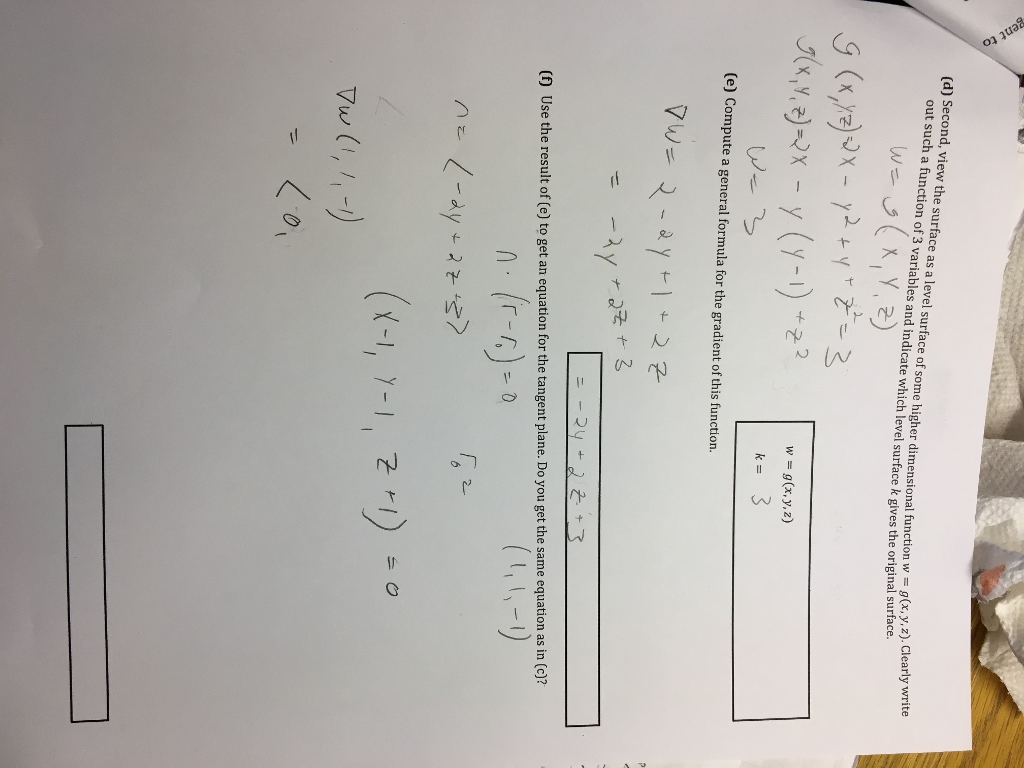 gent to
(d) Second, view the surface as a level surface of some higher dimensional function w = g(x, y, z). Clearly write
out such a function of 3 variables and indicate which level surface k gives the original surface.
w = g(x, y, z)
g(x, y, z) = 2x - y² + y + z² = 3
g(x, y, z) = 2x - y(y-1) + z²
w = 3
w = g(x, y, z)
k = 3
(e) Compute a general formula for the gradient of this function.
∇w = 2 - 2y + 1 + 2z
= -2y + 2z + 3
= -2y + 2z + 3
(f) Use the result of (e) to get an equation for the tangent plane. Do you get the same equation as in (c)?
n · (r - r₀) = 0
(1, 1, -1)
n = < -2y + 2z + 3 >
r₀ =
(x-1, y-1, z+1) = 0
∇w(1, 1, -1)
= < 0,